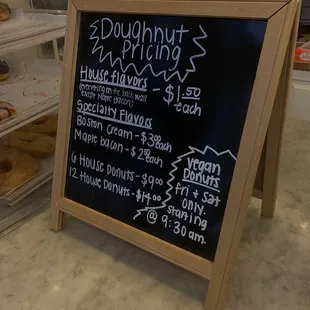 Doughnut
Pricing
House flavors - $1.50
(everything on the back wall
except Maple Bacon)
each
Specialty Flavors
Boston Cream - $3.00
each
Maple bacon - $2.50
each
6 House Donuts - $9.00
12 House Donuts - $14.00
Vegan
Donuts
Fri + Sat
only.
Starting
@ 9:30 am.